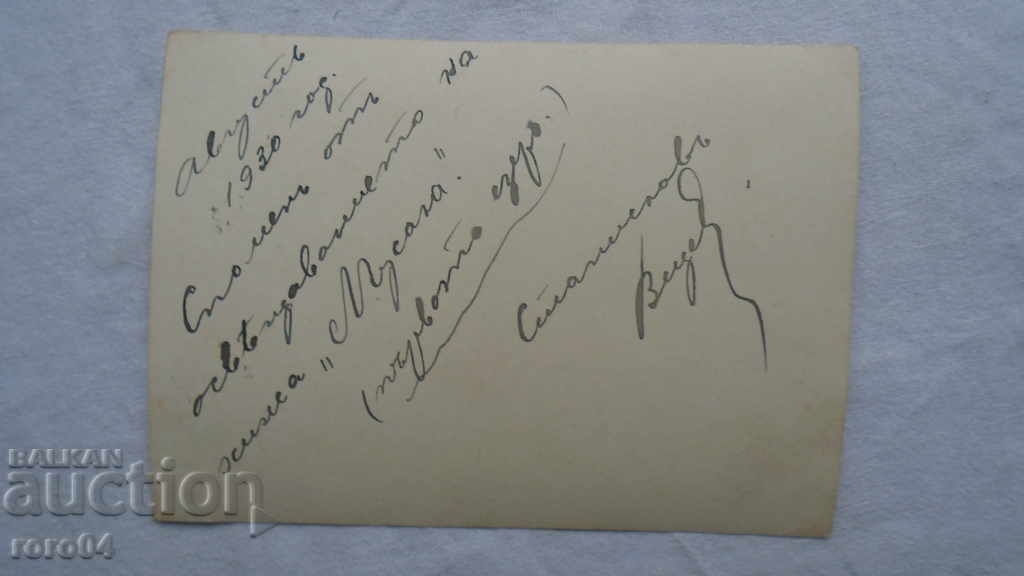 Августъ
1930 год.
Споменъ отъ
освѣщаванието на
хижа "Мусала."
(първото езеро.)
Станиславъ
BALKAN
auction
roro04